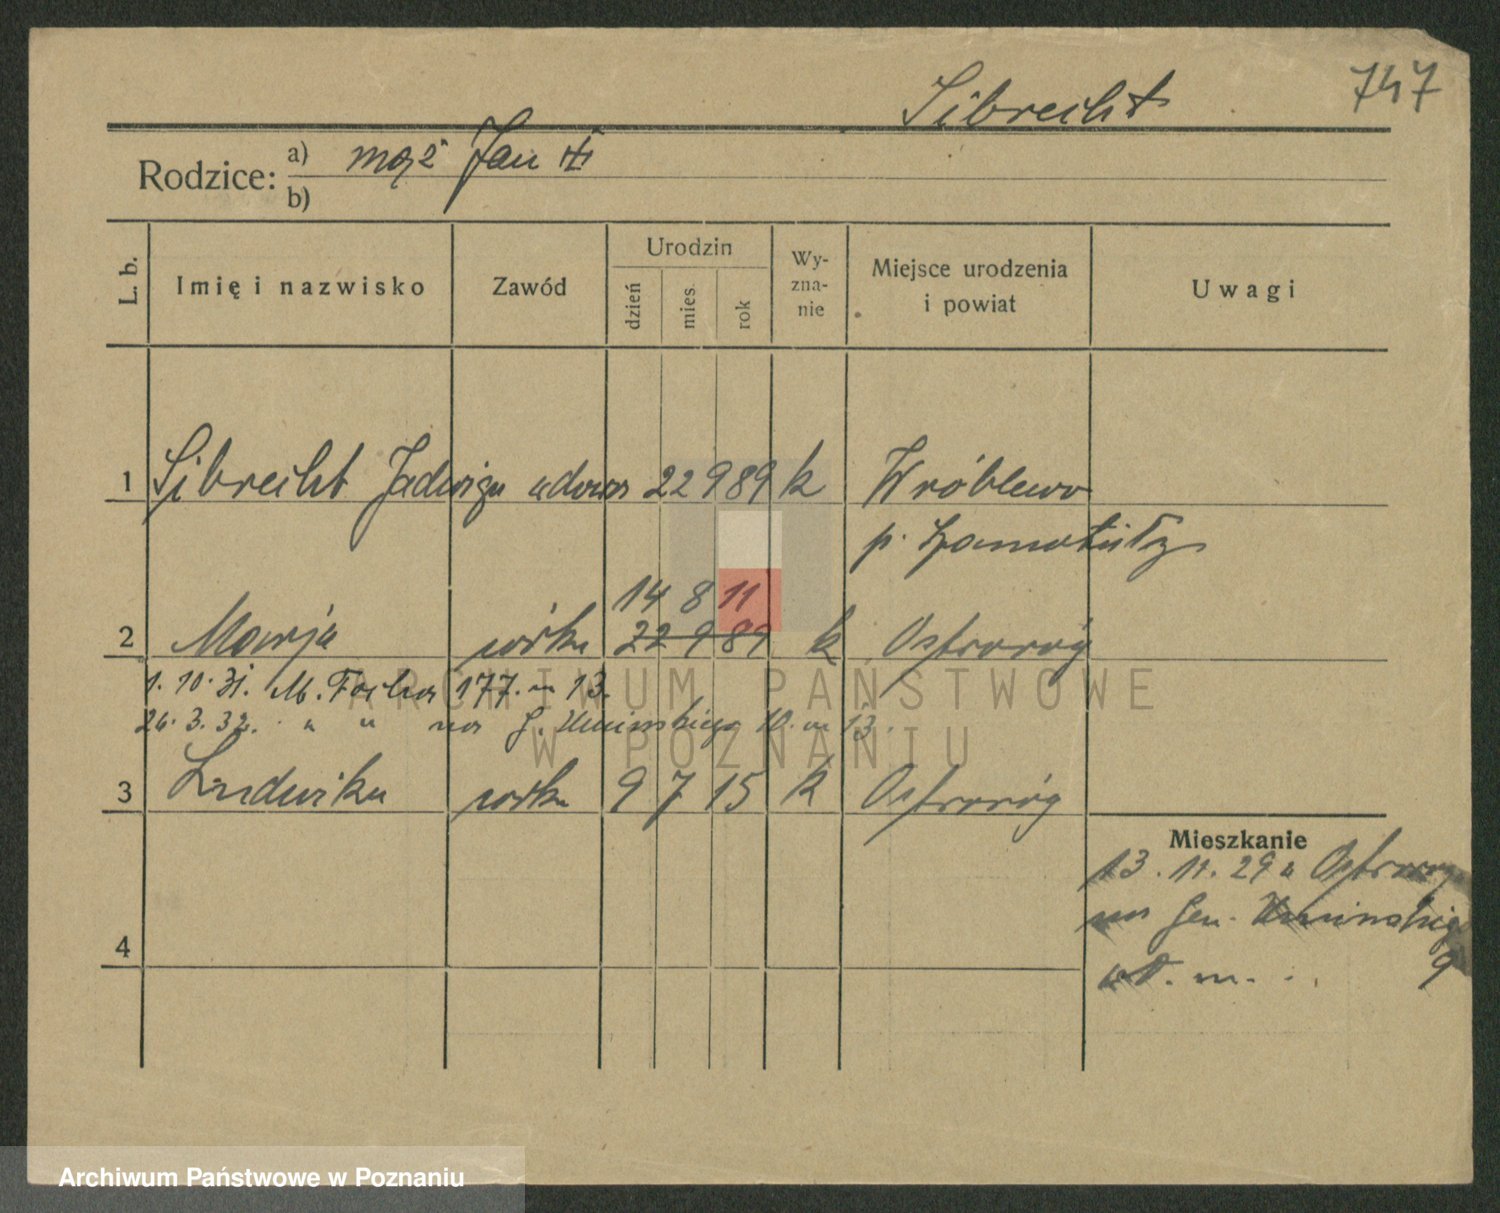 747
Sibrecht
Rodzice: a) mąż Jan
b)
L. b. Imię i nazwisko Zawód Urodzin dzień mies. rok Wy-zna-nie Miejsce urodzenia i powiat Uwagi
1 Sibrecht Jadwiga wdowa 22 9 89 k Wróblewo
p. Szamotuły
14 8 11
2 Marja córka 22 9 89 k Ostroróg
1. 10. 31. M. Focha 177. m 13.
26. 3. 32. " " na G. Umińskiego 10. m 13.
3 Ludwika córka 9 7 15 k Ostroróg
Mieszkanie
13. 11. 29 z Ostroroga
na Gen. Umińskiego
m. 9
4
ARCHIWUM PAŃSTWOWE
W POZNANIU
Archiwum Państwowe w Poznaniu